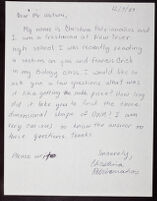 12/9/89
Dear Mr. Watson,
My name is Christina
I am a freshman at New Trier
high school. I was recently reading
a section on you and Francis Crick
in my Biology class. I would like to
ask you a few questions. what was
it like getting the noble prize? How long
did it take you to find the three
dimensional shape of DNA? I am
very curious to know the answer to
these questions. thanks
Please write
Sincerely,
Christina